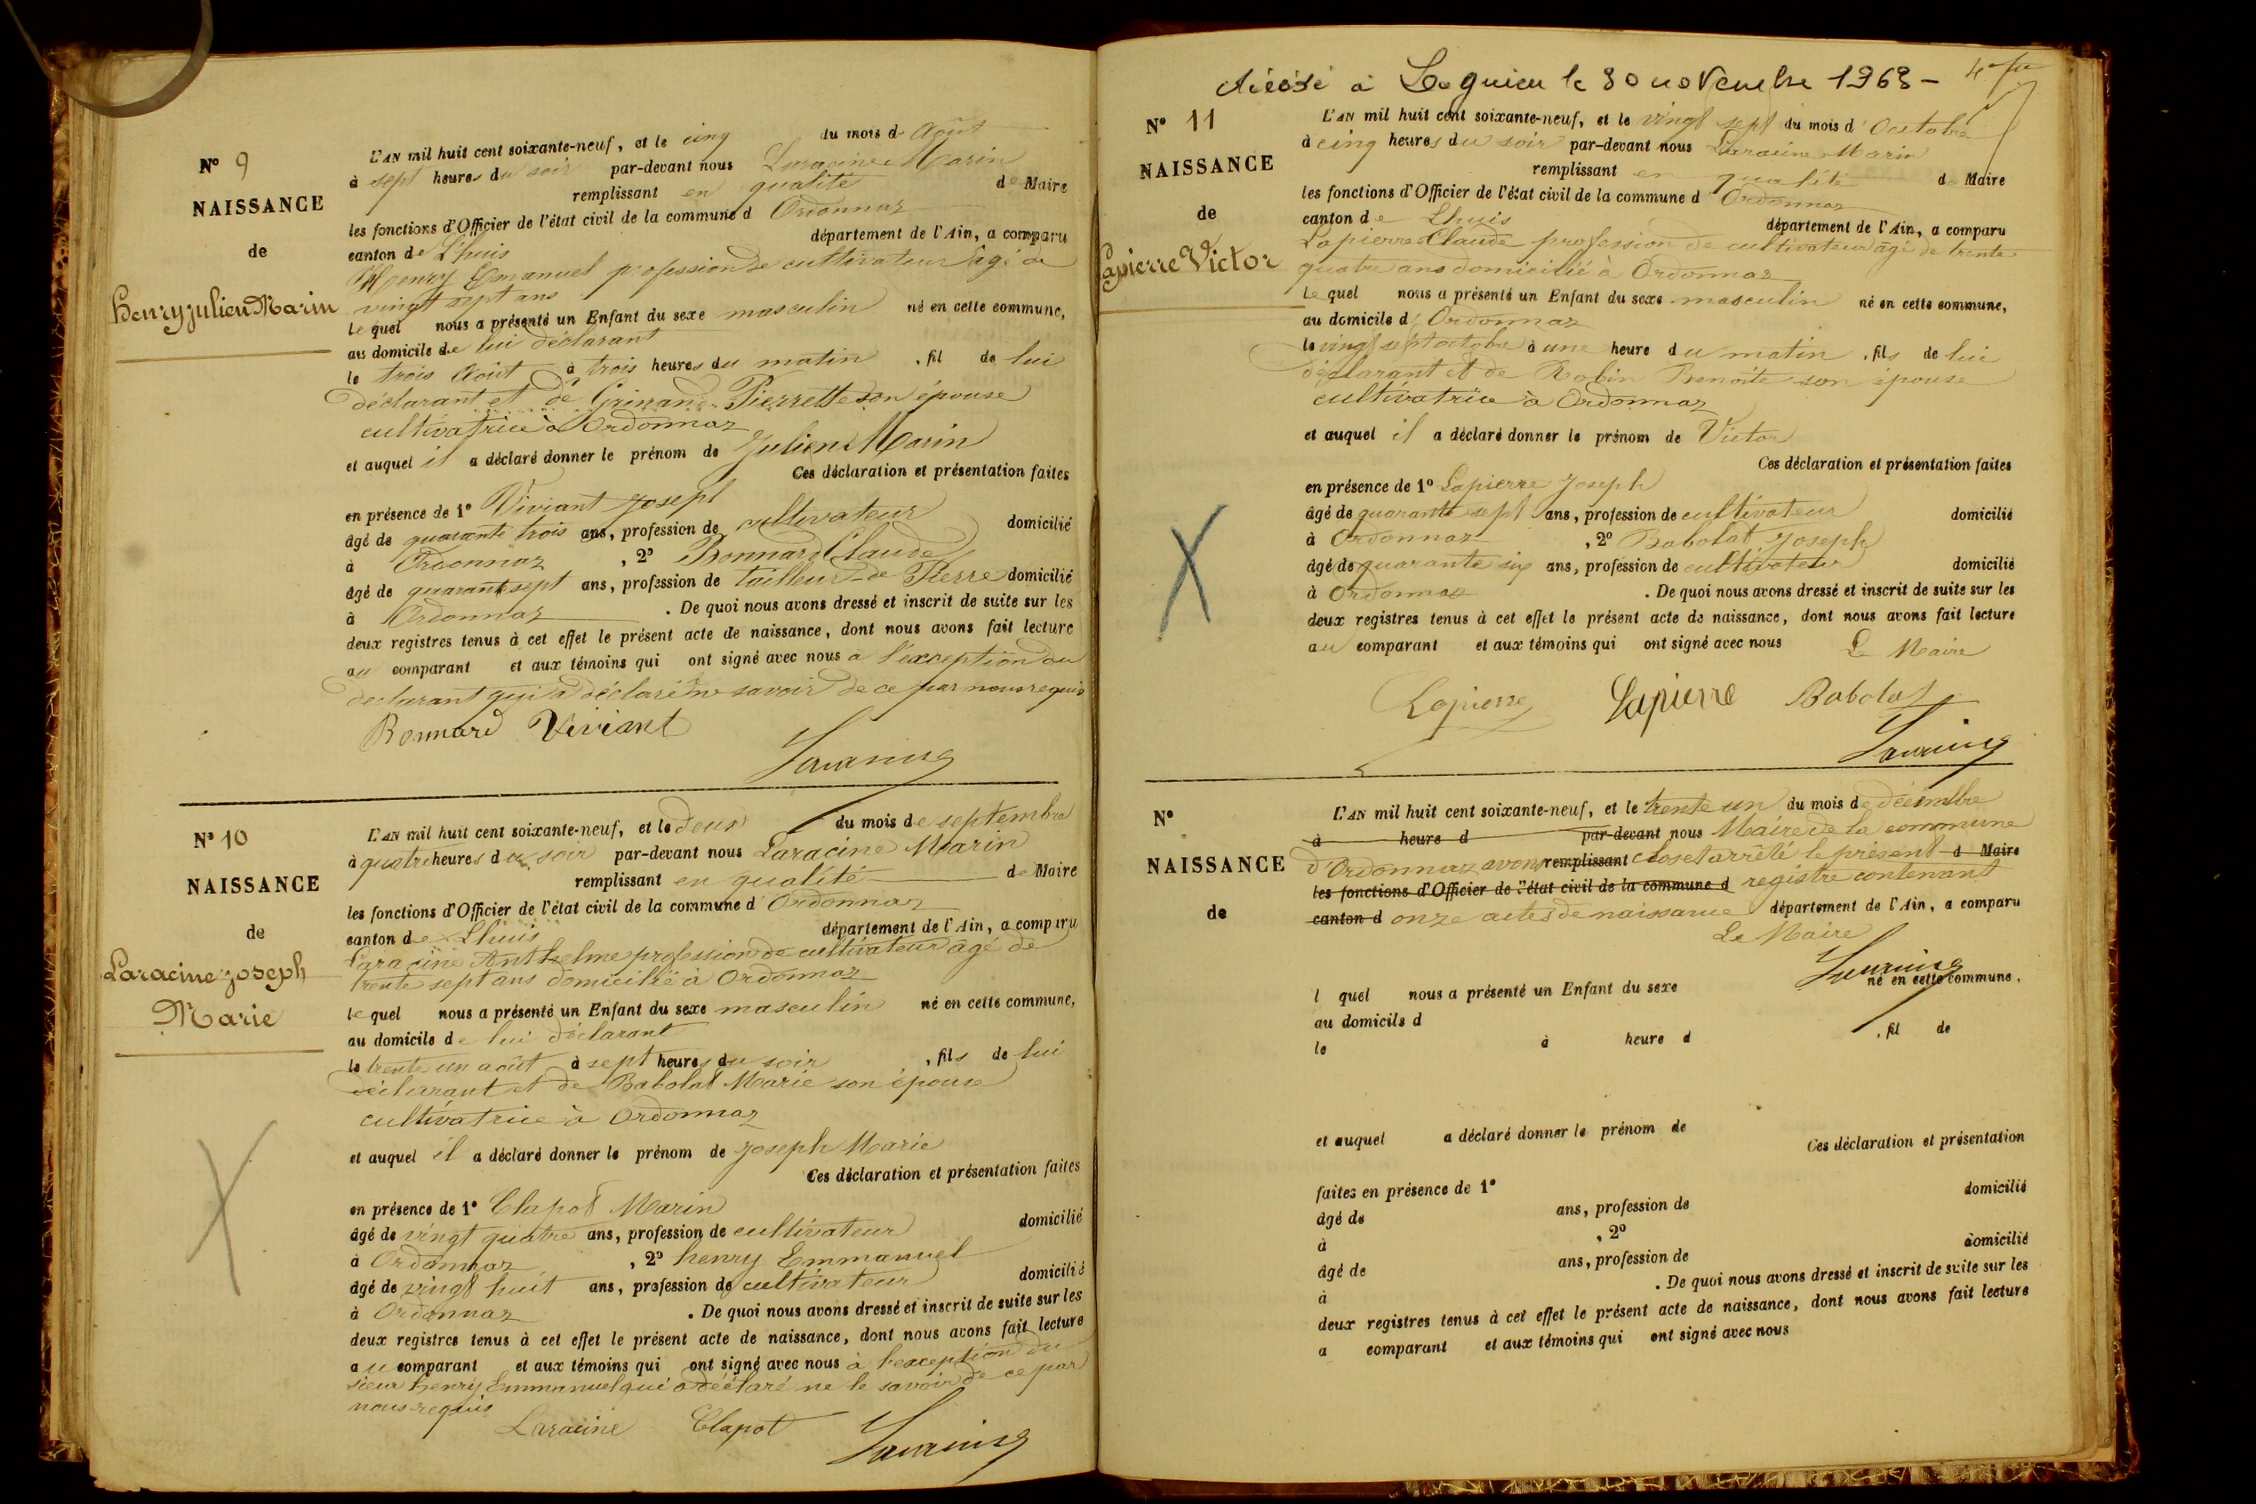 N° 9
NAISSANCE
de
Henry Julien Marin
L'AN mil huit cent soixante-neuf, et le cinq du mois d' Août
à sept heures du soir par-devant nous Laracine Marin
remplissant en qualité de Maire
les fonctions d'Officier de l'état civil de la commune d Ordonnaz
canton de Lhuis département de l'Ain, a comparu
Henry Emanuel profession de cultivateur agé de
vingt sept ans
le quel nous a présenté un Enfant du sexe masculin né en cette commune,
au domicile de lui déclarant
le trois Août à trois heures du matin , fil de lui
déclarant et de Pierrette son épouse
cultivatrice à Ordonnaz
et auquel il a déclaré donner le prénom de Julien Marin
Ces déclaration et présentation faites
en présence de 1° Viviant Joseph
âgé de quarante trois ans, profession de cultivateur domicilié
à Ordonnaz , 2° Bonnard Claude
âgé de quarante sept ans, profession de tailleur de Pierre domicilié
à Ordonnaz . De quoi nous avons dressé et inscrit de suite sur les
deux registres tenus à cet effet le présent acte de naissance, dont nous avons fait lecture
au comparant et aux témoins qui ont signé avec nous a l'exception du
declarant qui a déclaré ne savoir de ce par nous requis
Bonnard Viviant
Laracine
N° 10
NAISSANCE
de
Laracine Joseph
Marie
L'AN mil huit cent soixante-neuf, et le deux du mois de septembre
à quatre heures du soir par-devant nous Laracine Marin
remplissant en qualité de Maire
les fonctions d'Officier de l'état civil de la commune d' Ordonnaz
canton de Lhuis département de l'Ain, a comparu
Laracine Anthelme profession de cultivateur agé de
trente sept ans domicilié à Ordonnaz
le quel nous a présenté un Enfant du sexe masculin né en cette commune,
au domicile de lui déclarant
le trente un août à sept heures du soir , fils de lui
déclarant et de Babolat Marie son épouse
cultivatrice à Ordonnaz
et auquel il a déclaré donner le prénom de Joseph Marie
Ces déclaration et présentation faites
en présence de 1° Clapot Marin
âgé de vingt quatre ans, profession de cultivateur domicilié
à Ordonnaz , 2° henry Emmanuel
âgé de vingt huit ans, profession de cultivateur domicilié
à Ordonnaz . De quoi nous avons dressé et inscrit de suite sur les
deux registres tenus à cet effet le présent acte de naissance, dont nous avons fait lecture
au comparant et aux témoins qui ont signé avec nous à l'exception du
sieur henry Emmanuel qui a déclaré ne le savoir de ce par
nous requis
Laracine Clapot
Laracine
décédé à Lagnieu le 30 novembre 1963 -
N° 11
NAISSANCE
de
Lapierre Victor
L'AN mil huit cent soixante-neuf, et le vingt sept du mois d' Octobre
à cinq heures du soir par-devant nous Laracine Marin
remplissant en qualité de Maire
les fonctions d'Officier de l'état civil de la commune d' Ordonnaz
canton de Lhuis département de l'Ain, a comparu
Lapierre Claude profession de cultivateur agé de trente
quatre ans domicilié à Ordonnaz
le quel nous a présenté un Enfant du sexe masculin né en cette commune,
au domicile d' Ordonnaz
le vingt sept octobre à une heure du matin , fils de lui
déclarant et de Robin Benoite son épouse
cultivatrice à Ordonnaz
et auquel il a déclaré donner le prénom de Victor
Ces déclaration et présentation faites
en présence de 1° Lapierre Joseph
âgé de quarante sept ans, profession de cultivateur domicilié
à Ordonnaz , 2° Babolat Joseph
âgé de quarante six ans, profession de cultivateur domicilié
à Ordonnaz . De quoi nous avons dressé et inscrit de suite sur les
deux registres tenus à cet effet le présent acte de naissance, dont nous avons fait lecture
au comparant et aux témoins qui ont signé avec nous Le Maire
Lapierre Lapierre Babolat
Laracine
N°
NAISSANCE
de
L'AN mil huit cent soixante-neuf, et le trente un du mois de décembre
à heure d par-devant nous Maire de la commune
d'Ordonnaz avons remplissant clos et arrêté le présent d Maire
les fonctions d'Officier de l'état civil de la commune d registre contenant
canton d onze actes de naissance département de l'Ain, a comparu
Le Maire
Laracine
l quel nous a présenté un Enfant du sexe né en cette commune,
au domicile d
le à heure d , fil de
et auquel a déclaré donner le prénom de
Ces déclaration et présentation
faites en présence de 1°
âgé de ans, profession de domicilié
à , 2°
âgé de ans, profession de domicilié
à . De quoi nous avons dressé et inscrit de suite sur les
deux registres tenus à cet effet le présent acte de naissance, dont nous avons fait lecture
a comparant et aux témoins qui ont signé avec nous